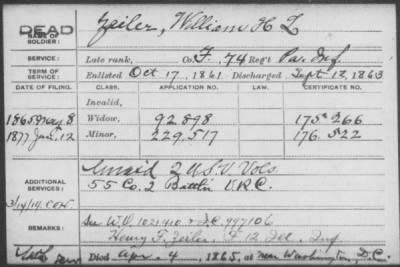 DEAD
NAME OF SOLDIER: Zeiler, William H Z
SERVICE: Late rank, Co. F, 74 Reg't Pa. Inf
TERM OF SERVICE: Enlisted Oct 17, 1861 Discharged Sept 12, 1863
DATE OF FILING. CLASS. APPLICATION NO. CERTIFICATE NO.
Invalid,
1865 May 8 Widow, 92898 175266
1877 Jan. 12 Minor, 229,517 176522
ADDITIONAL SERVICES: Unaid 2 U.S.V. Vols.
55 Co. 2 Battln V.R.C.
REMARKS: See W.O. 1021410 & I.C. 997106
Henry F. Zeiler, F 12 Inf
Died Apr. 4, 1865, at near Washington, D.C.